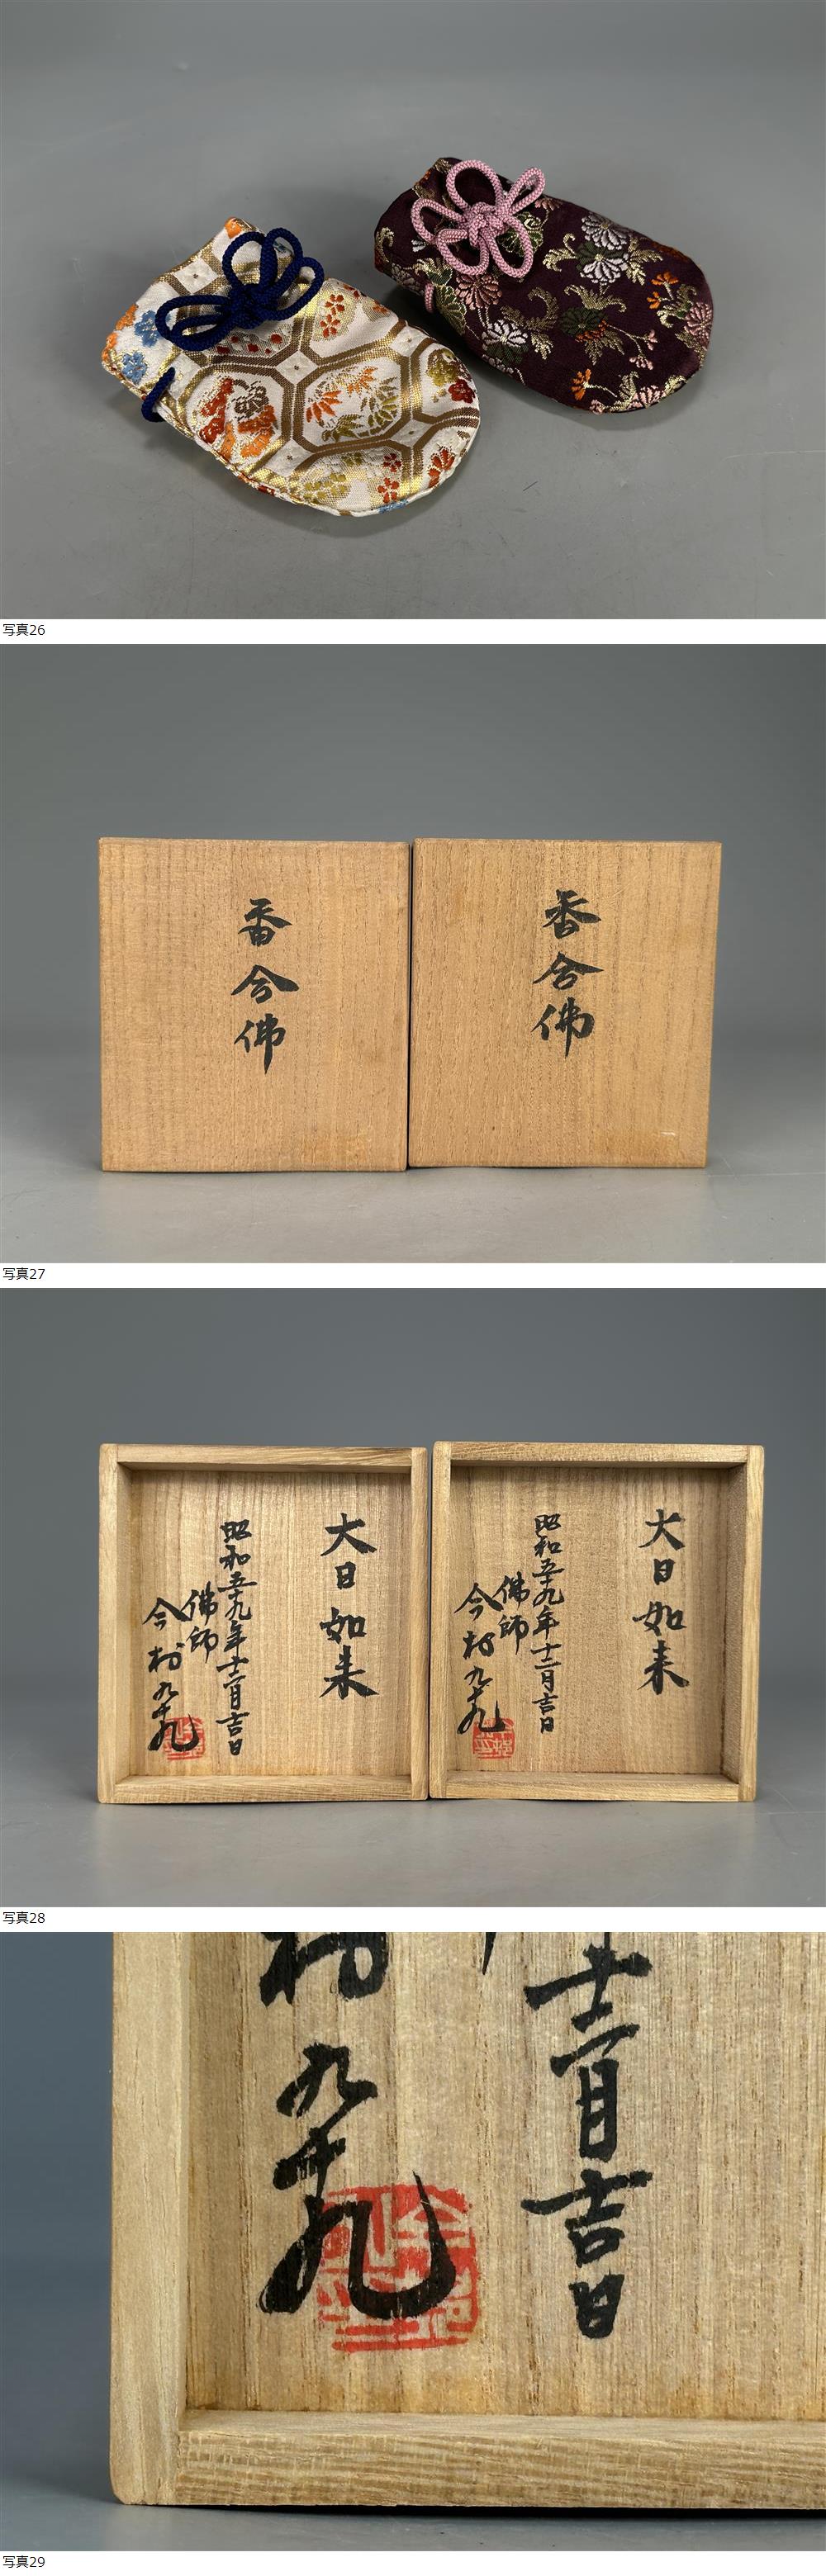 写真26
香合佛
香合佛
写真27
大日如来
昭和五十九年十二月吉日
佛師
今村九十九
大日如来
昭和五十九年十二月吉日
佛師
今村九十九
写真28
村
九十九
十二月吉日
写真29